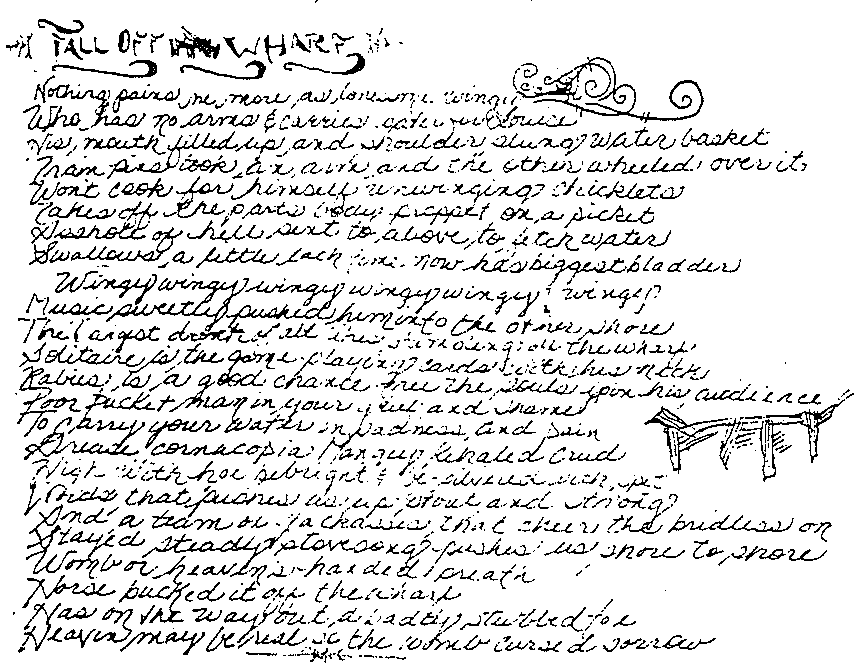 FALL OFF WHARF
Nothing pains me more, as lonesome wingy
Who has no arms & carries water for Louise
His, mouth filled up, and shoulder slung water basket
Tram pins took an arm and the other wheeled over it
Wont cook for himself unwinging chicklets
Takes off the parts body propped on a picket
Asshole of hell sent to above, to fetch water
Swallows, a little each time now has biggest bladder
Wingy wingy wingy wingy wingy wingy
Music sweetly pushed him into the other shore
The largest drink of all the wharf
Solitaire is the game playing cards with his neck
Rabies is a good chance free the souls upon his audience
Poor Bucket man in your and shame
To carry your water in sadness and pain
Grease cornacopia
High with
Winds that pushes us up stout and strong
And a team of jackasses, that cheer the bridless on
Stayed steady stovesong pushes us shore to shore
Womb or heaven's handed breath
Horse bucked it off the wharf
Was on the way out a badly stubbed toe
Heaven may be here so the womb cursed sorrow